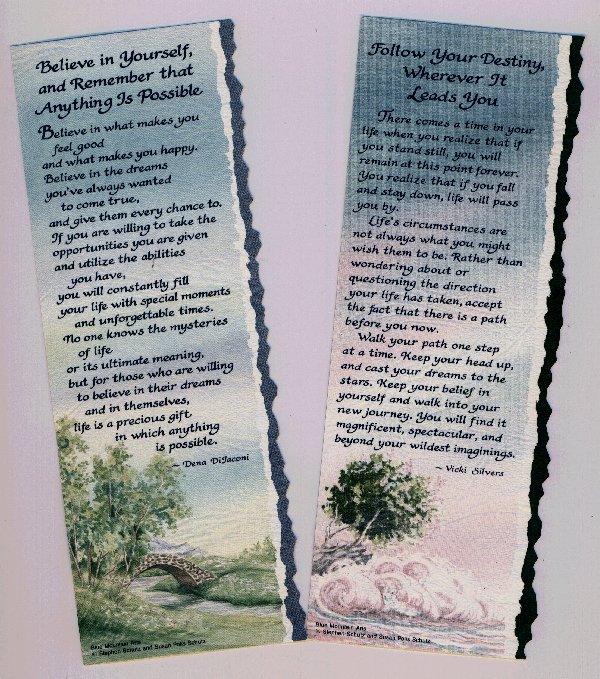 Believe in Yourself,
and Remember that
Anything Is Possible
Believe in what makes you
feel good
and what makes you happy.
Believe in the dreams
you've always wanted
to come true,
and give them every chance to.
If you are willing to take the
opportunities you are given
and utilize the abilities
you have,
you will constantly fill
your life with special moments
and unforgettable times.
No one knows the mysteries
of life
or its ultimate meaning,
but for those who are willing
to believe in their dreams
and in themselves,
life is a precious gift
in which anything
is possible.
~ Dena DiIaconi
Blue Mountain Arts
© Stephen Schutz and Susan Polis Schutz
Follow Your Destiny,
Wherever It
Leads You
There comes a time in your
life when you realize that if
you stand still, you will
remain at this point forever.
You realize that if you fall
and stay down, life will pass
you by.
Life's circumstances are
not always what you might
wish them to be. Rather than
wondering about or
questioning the direction
your life has taken, accept
the fact that there is a path
before you now.
Walk your path one step
at a time. Keep your head up,
and cast your dreams to the
stars. Keep your belief in
yourself and walk into your
new journey. You will find it
magnificent, spectacular, and
beyond your wildest imaginings.
~ Vicki Silvers
Blue Mountain Arts
© Stephen Schutz and Susan Polis Schutz